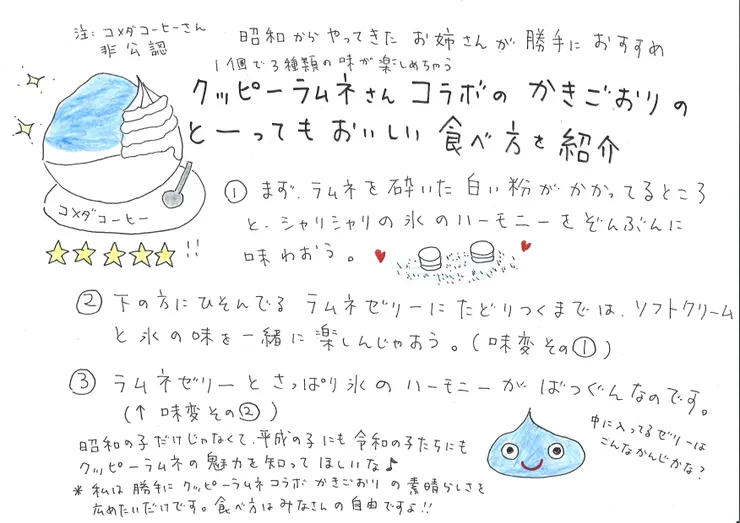 注: コメダコーヒーさん
非公認
昭和からやってきた お姉さんが 勝手に おすすめ
1個で3種類の味が楽しめちゃう
クッピーラムネさん コラボの かきごおりの
とーっても おいしい 食べ方を 紹介
コメダコーヒー
!!
① まず、ラムネを砕いた 白い粉がかかってるところ
と、シャリシャリの氷のハーモニーをぞんぶんに
味わおう。
② 下の方にひそんでる ラムネゼリーにたどりつくまでは、ソフトクリーム
と氷の味を一緒に楽しんじゃおう。(味変その①)
③ ラムネゼリーとさっぱり氷のハーモニーがばつぐんなのです。
(↑ 味変その②)
昭和の子だけじゃなくて、平成の子にも 令和の子たちにも
クッピーラムネの魅力を知ってほしいな♪
*私は勝手にクッピーラムネコラボかきごおりの素晴らしさを
広めたいだけです。食べ方はみなさんの自由ですよ!!
中に入ってるゼリーは
こんなかんじかな?